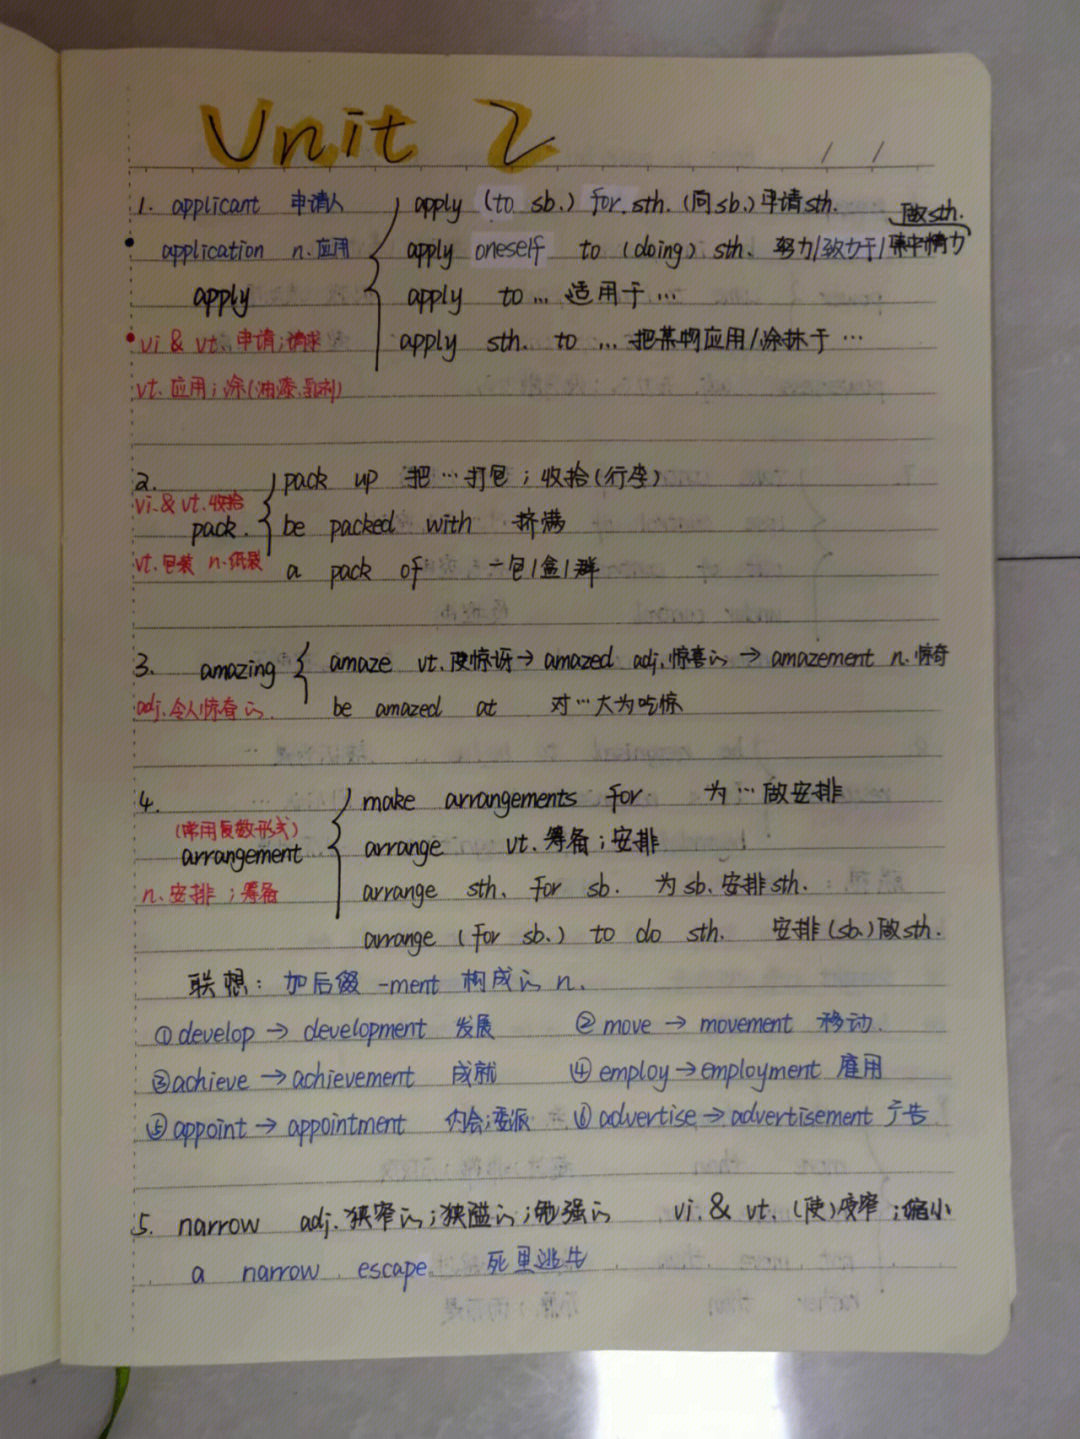 Unit 2
/ /
1. applicant 申请人 apply (to sb.) for sth. (向sb.)申请sth.
做sth.
application n.应用 apply oneself to (doing) sth. 努力/致力于/集中精力
apply apply to ... 适用于 ...
vi & vt. 申请;请求 apply sth. to ... 把某物应用/涂抹于 ...
vt. 应用;涂(油漆、乳剂)
2. pack up 把…打包;收拾(行李)
vi. & vt. 收拾
pack. be packed with 挤满
vt. 包装 n. 纸袋 a pack of 一包/盒/群
3. amazing amaze vt. 使惊讶→ amazed adj. 惊喜的 → amazement n. 惊奇
adj. 令人惊奇的. be amazed at 对…大为吃惊
4. make arrangements for 为…做安排
(常用复数形式)
arrangement arrange vt. 筹备;安排
n. 安排;筹备 arrange sth. for sb. 为sb.安排sth.
arrange (for sb.) to do sth. 安排(sb.)做sth.
联想: 加后缀 -ment 构成的 n.
①develop → development 发展 ② move → movement 移动.
③achieve → achievement 成就 ④ employ → employment 雇用
⑤appoint → appointment 约会;委派 ⑥ advertise → advertisement 广告
5. narrow adj. 狭窄的;狭隘的;勉强的 vi. & vt. (使)变窄;缩小
a narrow escape. 死里逃生